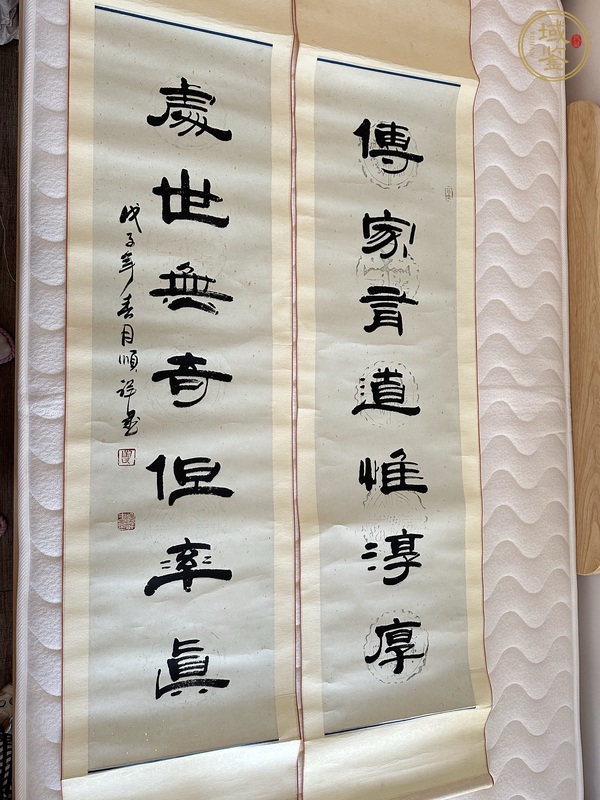 傳家有道惟淳厚
處世無奇但率眞
戊子年春月順祥書
域鉴